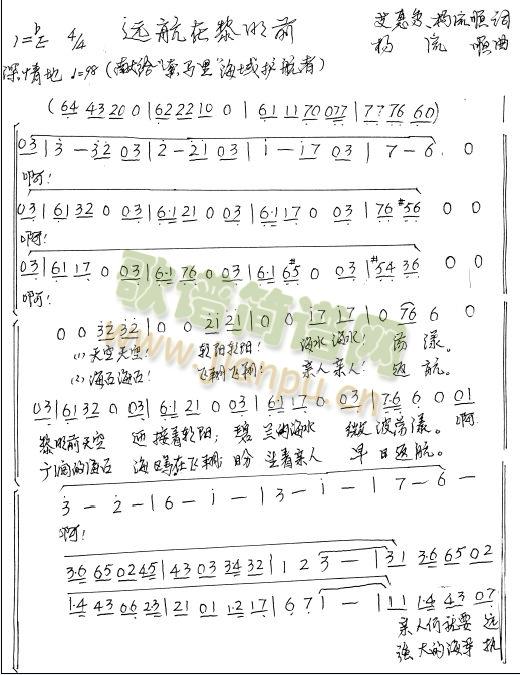 1=♭E 4/4 远航在黎明前
艾惠多、杨流顺词
杨流顺曲
深情地 ♩=98 (献给"索马里"海域护航者)
(64 43 20 0 | 62 22 10 0 | 61 11 70 077 | 77 76 60)
03 | 3 – 32 03 | 2 – 21 03 | 1 – 17 03 | 7 – 6. 0
啊!
03 | 61 32 0 03 | 6·1 21 0 03 | 6·1 17 0 03 | 76 #56 0 0
啊!
03 | 61 17 0 03 | 6·1 76 0 03 | 6·1 6#5 0 03 | #54 36 0 0
啊!
0 0 32 32 | 0 0 21 21 | 0 0 17 17 | 0 76 6 0
(1) 天空天空! 朝阳朝阳! 海水海水! 荡漾。
(2) 海石海石! 飞翔飞翔! 亲人亲人! 返航。
03 | 61 32 0 03 | 6·1 21 0 03 | 6·1 17 0 03 | 7·6 6 0 01
黎明前天空 迎接着朝阳; 碧兰的海水 微波荡漾。啊
广阔的海石 海鸥在飞翔; 盼望着亲人 早日返航。
3 – 2 – | 6 – 1 – | 3 – 1 – | 7 – 6 –
啊!
3·6 65 02 45 | 43 03 34 32 | 1 2 3 – | 31 3·6 65 02
1·4 43 06 23 | 21 01 1·2 17 | 6 7 1 – | 11 1·4 43 07
亲人们就要 远
强大的海军 执
歌谱简谱网
www.jianpu.cn